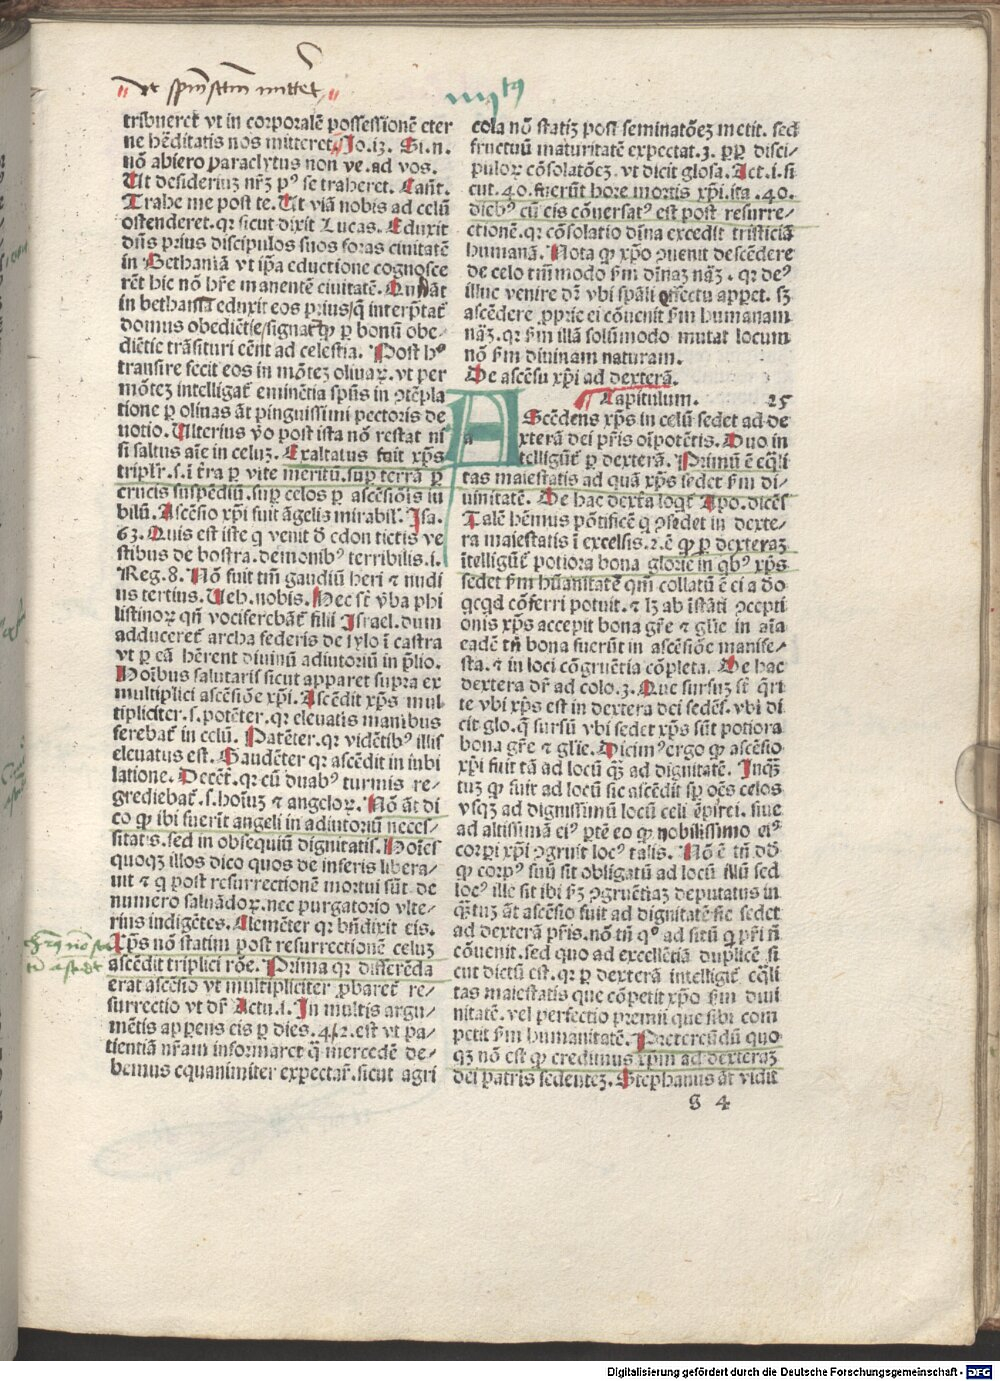 tribueret̄ vt in corporalē possessionē eter
ne hēditatis nos mitteret. Jo.iꝫ. Si.n.
nō abiero paraclytus non ve. ad vos.
Ut desideriuꝫ nr̄ꝫ pꝰ se traheret. Cant̄.
Trahe me post te. Ut viā nobis ad celū
ostenderet. qꝛ sicut dixit Lucas. Eduxit
dn̄s prius discipulos suos foras ciuitatē
in Bethaniā vt ip̄a eductione cognosce
rēt hic nō hr̄e manentē ciuitatē.
in bethania eduxit eos prius
domus obediētie signat̄ ꝙ ꝑ bonū obe⸗
diētie trāsituri cēnt ad celestia. Post hꝰ
transire fecit eos in mōteꝫ oliuaꝝ. vt per
mōteꝫ intelligat̄ eminētia spūs in ꝯtēpla
tione ꝑ oliuas āt pinguissimi pectoris de
uotio. Ulterius v̄o post ista nō restat ni
si saltus aīe in celuꝫ. Exaltatus fuit xp̄s
triplr̄. s. ī t̄ra ꝑ vite meritū. suꝑ terrā ꝑ
crucis suspēdiū. suꝑ celos ꝑ ascēsiōis iu
bilū. Ascēsio xp̄i fuit āgelis mirabil̄. Isa.
63. Quis est iste q̄ venit ð edon tictis ve
stibus de bostra. demonibꝰ terribilis. i.
Reg.8. Nō fuit tm̄ gaudiū heri ⁊ nudi
us tertius. Ueh. nobis. Hec st̄ v̄ba phi
listinoꝝ qn̄ vociferebāt̄ filii Israel. dum
adduceret̄ archa federis de sylo ī castra
vt ꝑ eā hērent diuinū adiutoriū in p̄lio.
Hoībus salutaris sicut apparet supra ex
multiplici ascēsiōe xp̄i. Ascēdit xp̄s mul
tipliciter. s. potēter. qꝛ eleuatis manibus
ferebat̄ in celū. Patēter. qꝛ vidētibꝰ illis
eleuatus est. Gaudēter qꝛ ascēdit in iubi
latione. Decēt̄. qꝛ cū duabꝰ turmis re⸗
grediebat̄. s. hoīuꝫ ⁊ angeloꝝ. Nō āt di
co ꝙ ibi fuerīt angeli in adiutoriū neces⸗
sitatis. sed in obsequiū dignitatis. Hoīes
quoqꝫ illos dico quos de inferis libera⸗
uit ⁊ q̄ post resurrectionē mortui sūt. de
numero saluādoꝝ. nec purgatorio vlte⸗
rius indigētes. Clemēter qꝛ bn̄dixit eis.
Xp̄s nō statim post resurrectionē celuꝫ
ascēdit triplici rōe. Prima qꝛ differēda
erat ascēsio vt multipliciter ꝓbaret̄ re⸗
surrectio vt dr̄ Actu.i. In multis argu⸗
mētis apparens eis ꝑ dies. 4. 2. est vt pa⸗
tientiā nr̄am informaret q̄ mercedē de⸗
bemus equanimiter expectar̄. sicut agri
cola nō statiꝫ post seminatōeꝫ metit. sed
fructuū maturitatē expectat. 3. ꝓꝑ disci⸗
puloꝝ cōsolatōeꝫ. vt dicit glosa. Act.i. si
cut. 40. fuerūt hore mortis xp̄i. ita .40.
diebꝰ cū eis cōuersatꝰ est post resurre⸗
ctionē. qꝛ cōsolatio dīna excedit tristiciā
humanā. Nota ꝙ xp̄o ꝯuenit descēdere
de celo tm̄modo fm̄ dīnaꝫ nāꝫ. qꝛ deꝰ
illuc venire dr̄ vbi spāli effectu appet. sꝫ
ascēdere ꝓprie ei cōuenit fm̄ humanam
nāꝫ. qꝛ fm̄ illā solūmodo mutat locum
nō fm̄ diuinam naturam.
De ascēsu xp̄i ad dexterā.
Capitulum. 25
AScēdens xp̄s in celū sedet ad de⸗
xterā dei pr̄is oīpotētis. Duo in
telligūt̄ ꝑ dexterā. Primū ē eq̄li
tas maiestatis ad quā xp̄s sedet fm̄ di⸗
uinitatē. De hac dext̄a loqt̄ Apo. dicēs
Talē hēmus pōtificē q̄ ꝯsedet in dexte⸗
ra maiestatis ī excelsis. 2. ē ꝙ ꝑ dexteraꝫ
ītelligūt̄ potiora bona glorie in qbꝰ xp̄s
sedet fm̄ hūanitatē qm̄ collatū ē ei a do
gcgd cōferri potuit. ⁊ lꝫ ab īstāti ꝯcepti
onis xp̄s accepit bona gr̄e ⁊ gl̄ie in aīa
eadē tn̄ bona fuerūt in ascēsiōe manife⸗
sta. ⁊ in loci cōgruētia cōpleta. De hac
dextera dr̄ ad colo. 3. Que sursuꝫ st̄ q̄ri
te vbi xp̄s est in dextera dei sedēs. vbi di
cit glo. q̄ sursū vbi sedet xp̄s sūt potiora
bona gr̄e ⁊ gl̄ie. Dicimꝰ ergo ꝙ ascēsio
xp̄i fuit tā ad locū q̄ꝫ ad dignitatē. Inq̄ꝫ
tuꝫ ꝙ fuit ad locū sic ascēdit sꝑ oēs celos
vsqꝫ ad dignissimū locū celi ēpirei. siue
ad altissimā eiꝰ ꝑtē eo ꝙ nobilissimo eiꝰ
corꝑi xp̄i ꝯgruit locꝰ talis. Nō ē tn̄ dd̄
ꝙ corpꝰ suū sit obligatū ad locū illū sed
locꝰ ille sit ibi fꝫ ꝯgruētiaꝫ deputatus in
q̄ꝫtuꝫ āt ascēsio fuit ad dignitatē sic sedet
ad dexterā pr̄is. nō tn̄ qꝰ ad sitū q̄ pr̄i n̄
cōuenit. sed quo ad excellētiā duplicē si
cut dictū est. qꝛ ꝑ dexterā intelligit̄ eq̄li
tas maiestatis que cōpetit xp̄o fm̄ diui
nitatē. vel perfectio premii que sibi com
petit fm̄ humanitatē. Pretereūdū quo
qꝫ nō est ꝙ credimus xp̄m ad dexteraꝫ
dei patris sedenteꝫ. Stephanus āt vidit
g 4
Digitalisierung gefördert durch die Deutsche Forschungsgemeinschaft - DFG